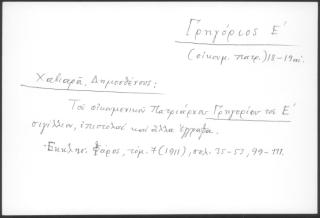 Γρηγόριος Ε΄
(οἰκουμ. πατρ.) 18-19 αἰ.
Χαβιαρᾶ, Δημοσθένους:
Τοῦ οἰκουμενικοῦ Πατριάρχου Γρηγορίου τοῦ Ε΄
σιγίλλιον, ἐπιστολαὶ καὶ ἄλλα ἔγγραφα.
Ἐκκλησ. Φάρος, τόμ. 7 (1911), σελ. 35-53, 99-111.